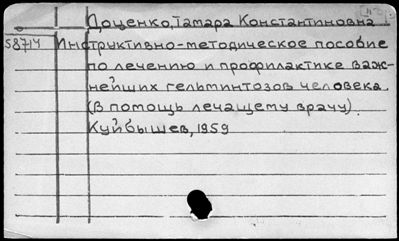 Доценко, Тамара Константиновна
58714 Инструктивно-методическое пособие
по лечению и профилактике важ-
нейших гельминтозов человека.
(В помощь лечащему врачу)
Куйбышев, 1959